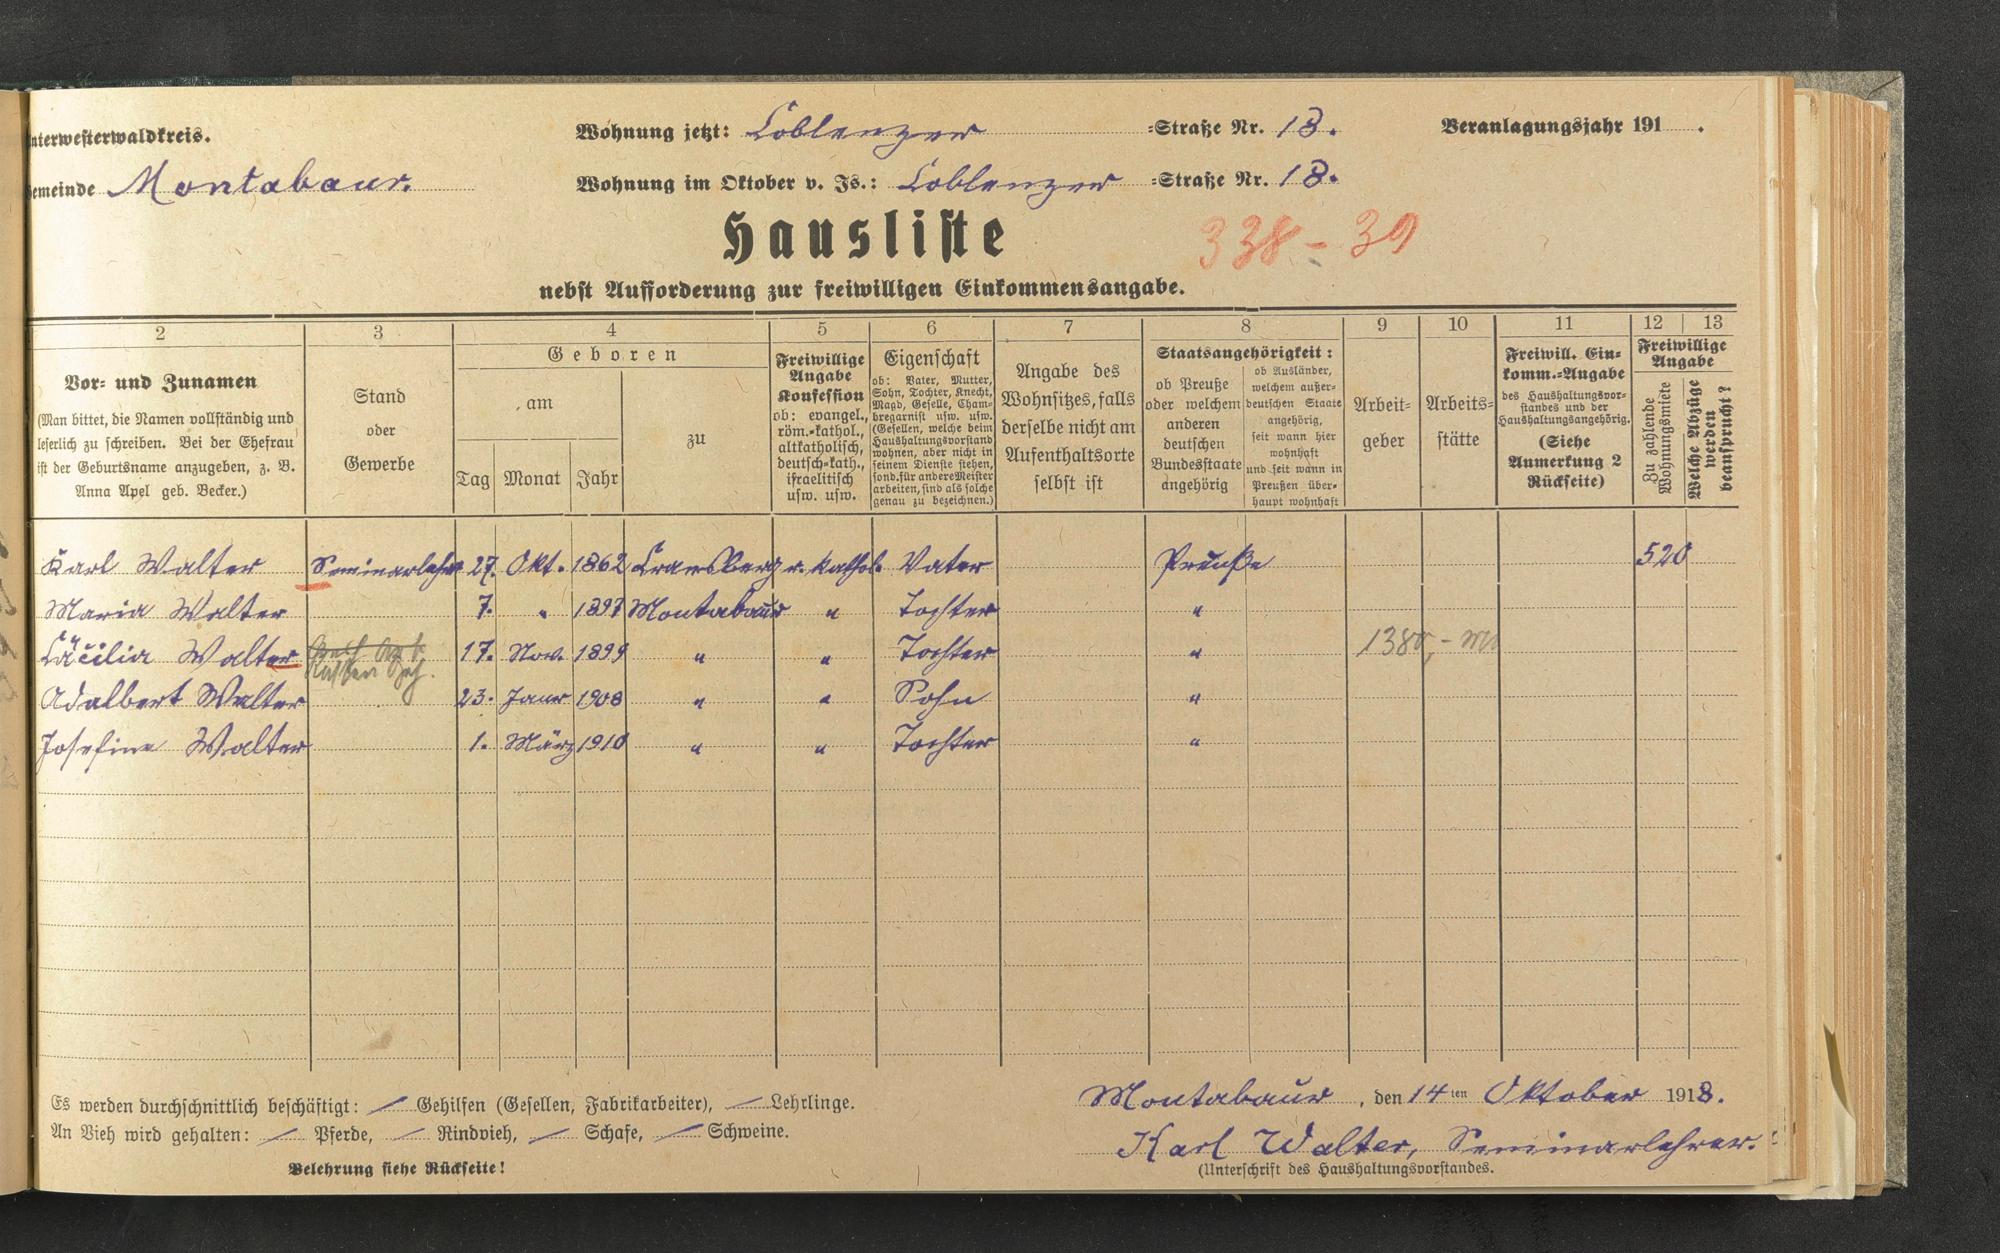 Unterwesterwaldkreis.
Wohnung jetzt: Coblenzer =Straße Nr. 13.
Veranlagungsjahr 191 .
Gemeinde Montabaur.
Wohnung im Oktober v. Js.: Coblenzer =Straße Nr. 13.
Hausliste
338 - 39
nebst Aufforderung zur freiwilligen Einkommensangabe.
2 3 4 5 6 7 8 9 10 11 12 13
Vor- und Zunamen
(Man bittet, die Namen vollständig und
leserlich zu schreiben. Bei der Ehefrau
ist der Geburtsname anzugeben, z. B.
Anna Apel geb. Becker.)
Stand
oder
Gewerbe
Geboren
am
Tag Monat Jahr
zu
Freiwillige
Angabe
Konfession
ob: evangel.,
röm.-kathol.,
altkatholisch,
deutsch-kath.,
israelitisch
usw. usw.
Eigenschaft
ob: Vater, Mutter,
Sohn, Tochter, Knecht,
Magd, Geselle, Cham-
bregarnist usw. usw.
(Gesellen, welche beim
Haushaltungsvorstand
wohnen, aber nicht in
seinem Dienste stehen,
sond. für andere Meister
arbeiten, sind als solche
genau zu bezeichnen.)
Angabe des
Wohnsitzes, falls
derselbe nicht am
Aufenthaltsorte
selbst ist
Staatsangehörigkeit:
ob Preuße
oder welchem
anderen
deutschen
Bundesstaate
angehörig
ob Ausländer,
welchem außer-
deutschen Staate
angehörig,
seit wann hier
wohnhaft
und seit wann in
Preußen über-
haupt wohnhaft
Arbeit-
geber
Arbeits-
stätte
Freiwill. Ein-
komm.=Angabe
des Haushaltungsvor-
standes und der
Haushaltungsangehörig.
(Siehe
Anmerkung 2
Rückseite)
Freiwillige
Angabe
Zu zahlende
Wohnungsmiete
Welche Abzüge
werden
beansprucht?
Karl Walter Seminarlehrer 27. Okt. 1862 r. kathol. Vater Preuße 520
Maria Walter 7. " 1897 Montabaur " Tochter "
Cäcilia Walter 17. Nov. 1899 " " Tochter " 1380,- M
Adalbert Walter 23. Janr 1908 " " Sohn "
Josefine Walter 1. März 1910 " " Tochter "
Es werden durchschnittlich beschäftigt: — Gehilfen (Gesellen, Fabrikarbeiter), — Lehrlinge.
An Vieh wird gehalten: — Pferde, — Rindvieh, — Schafe, — Schweine.
Belehrung siehe Rückseite!
Montabaur, den 14ten Oktober 1918.
Karl Walter, Seminarlehrer.
(Unterschrift des Haushaltungsvorstandes.